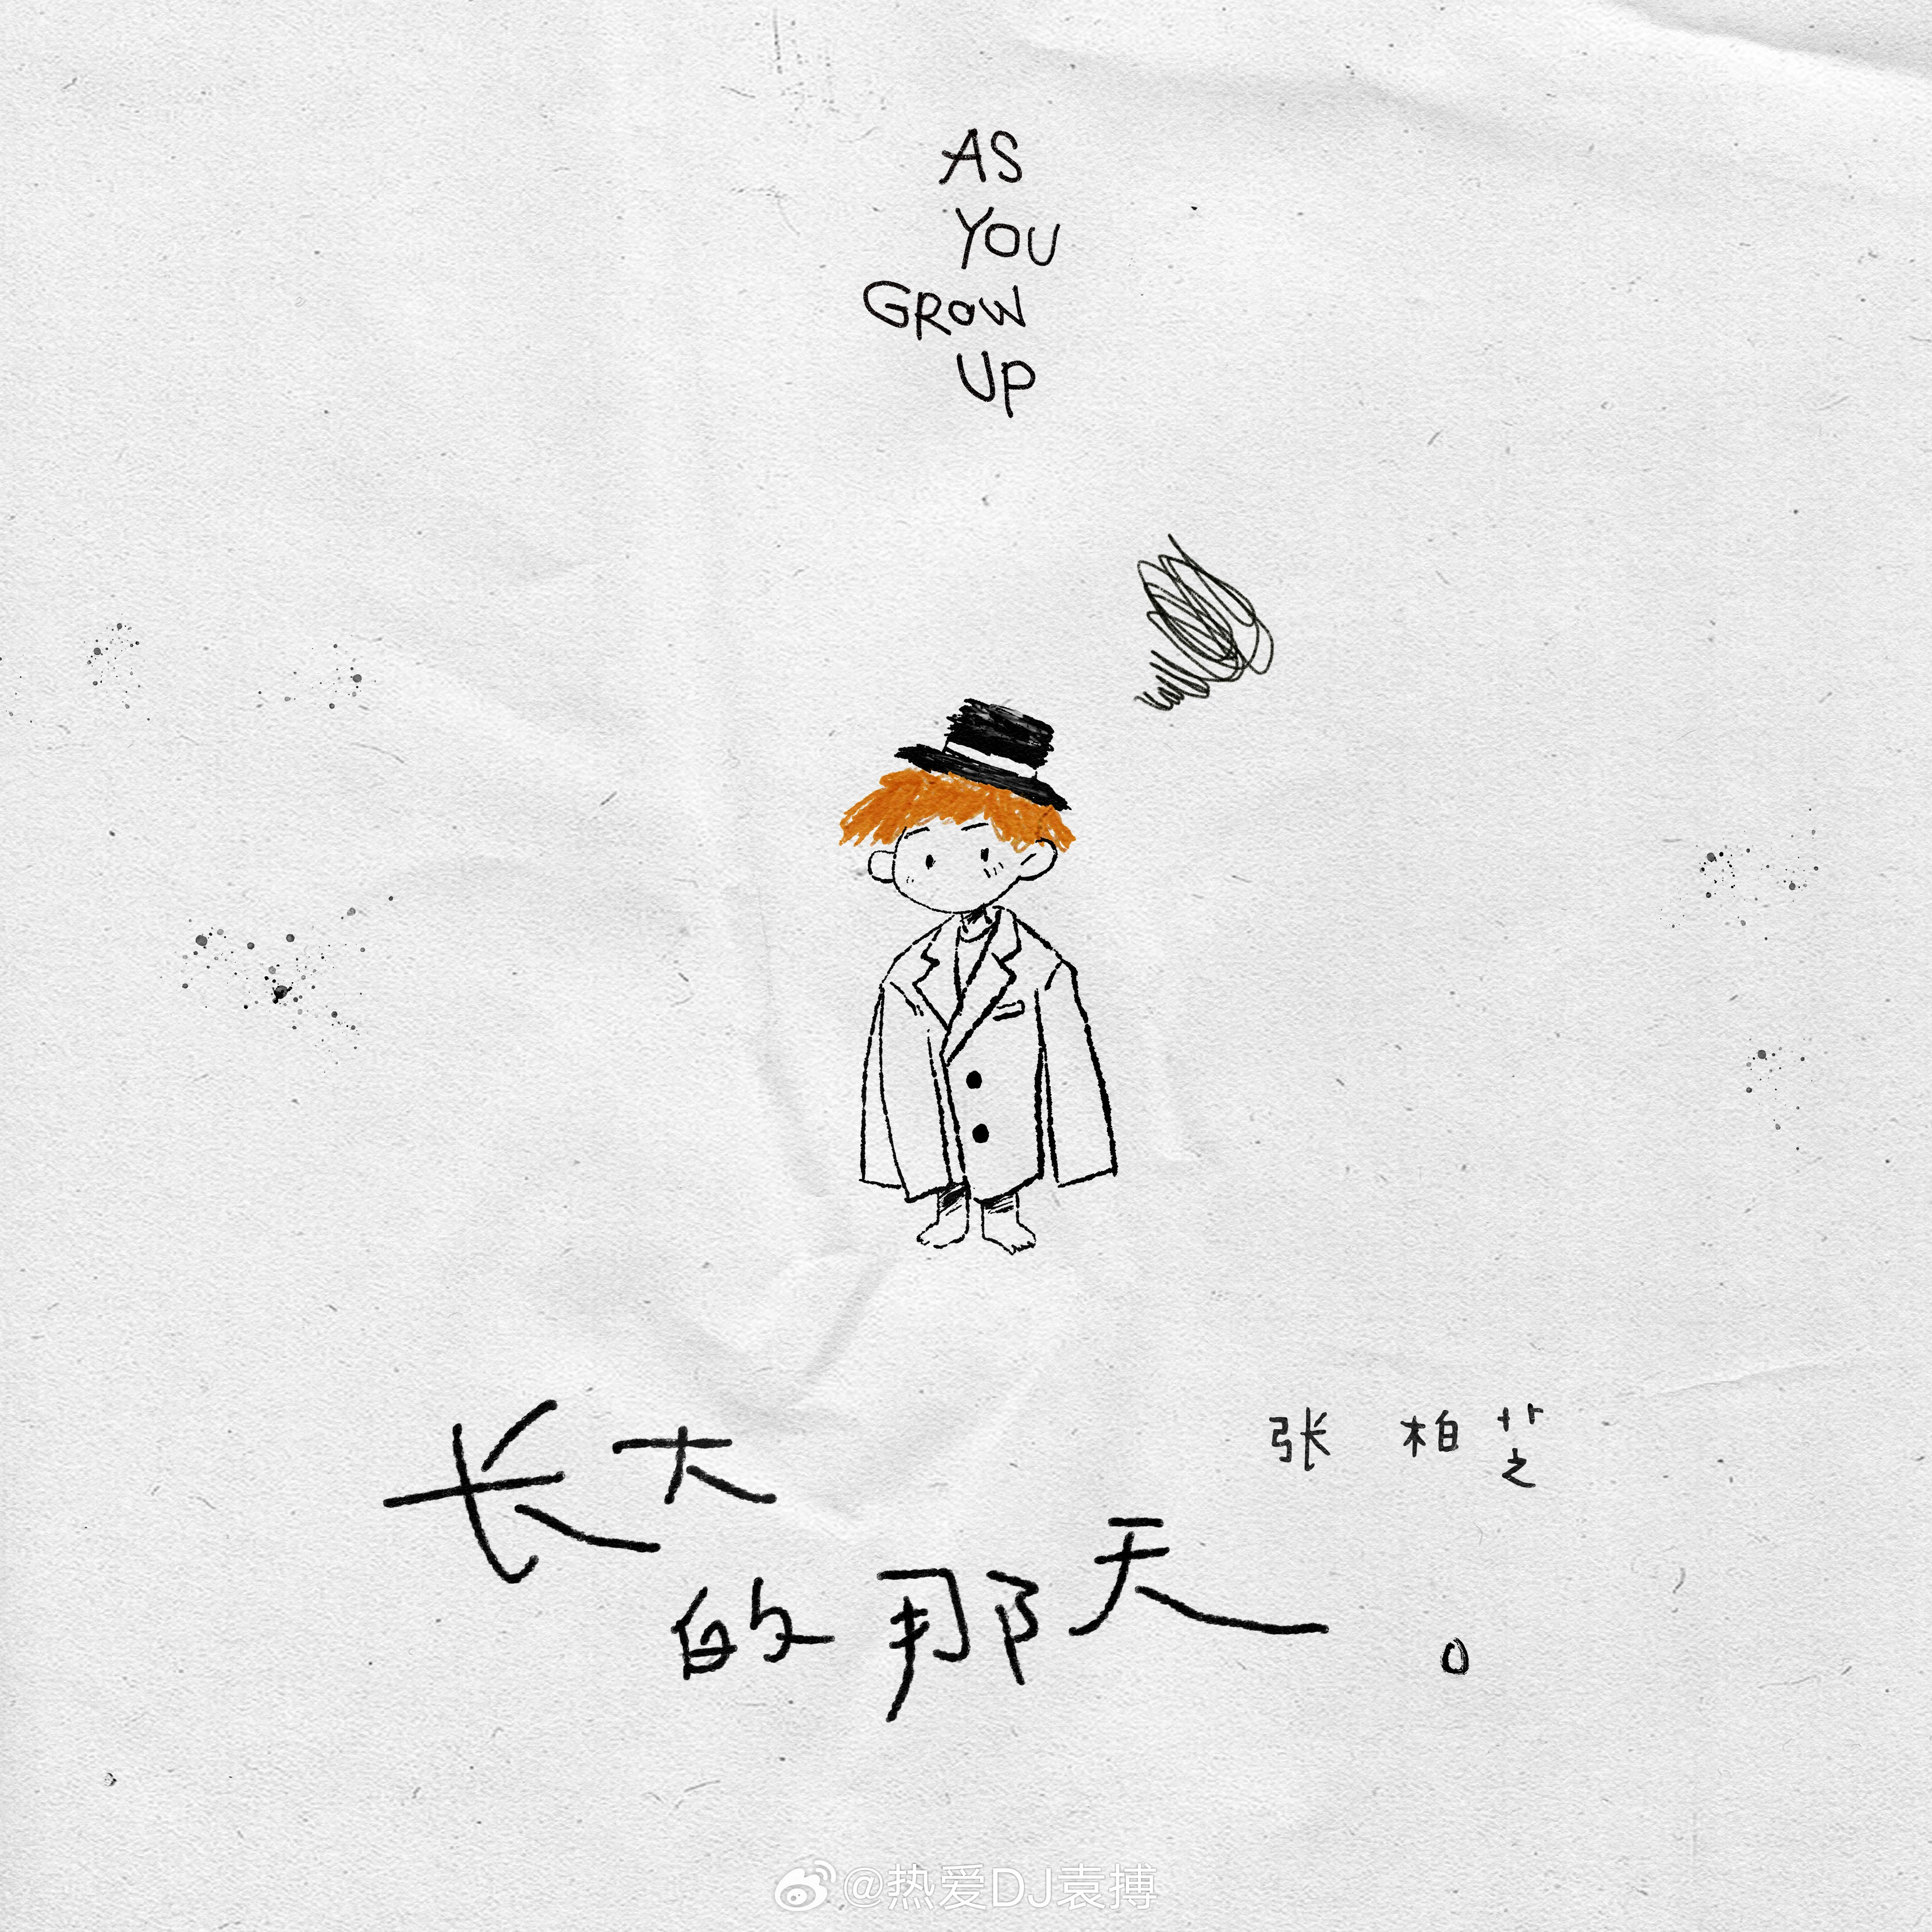 AS
YOU
GROW
UP
长大
张柏芝
的那天。
@热爱DJ袁搏